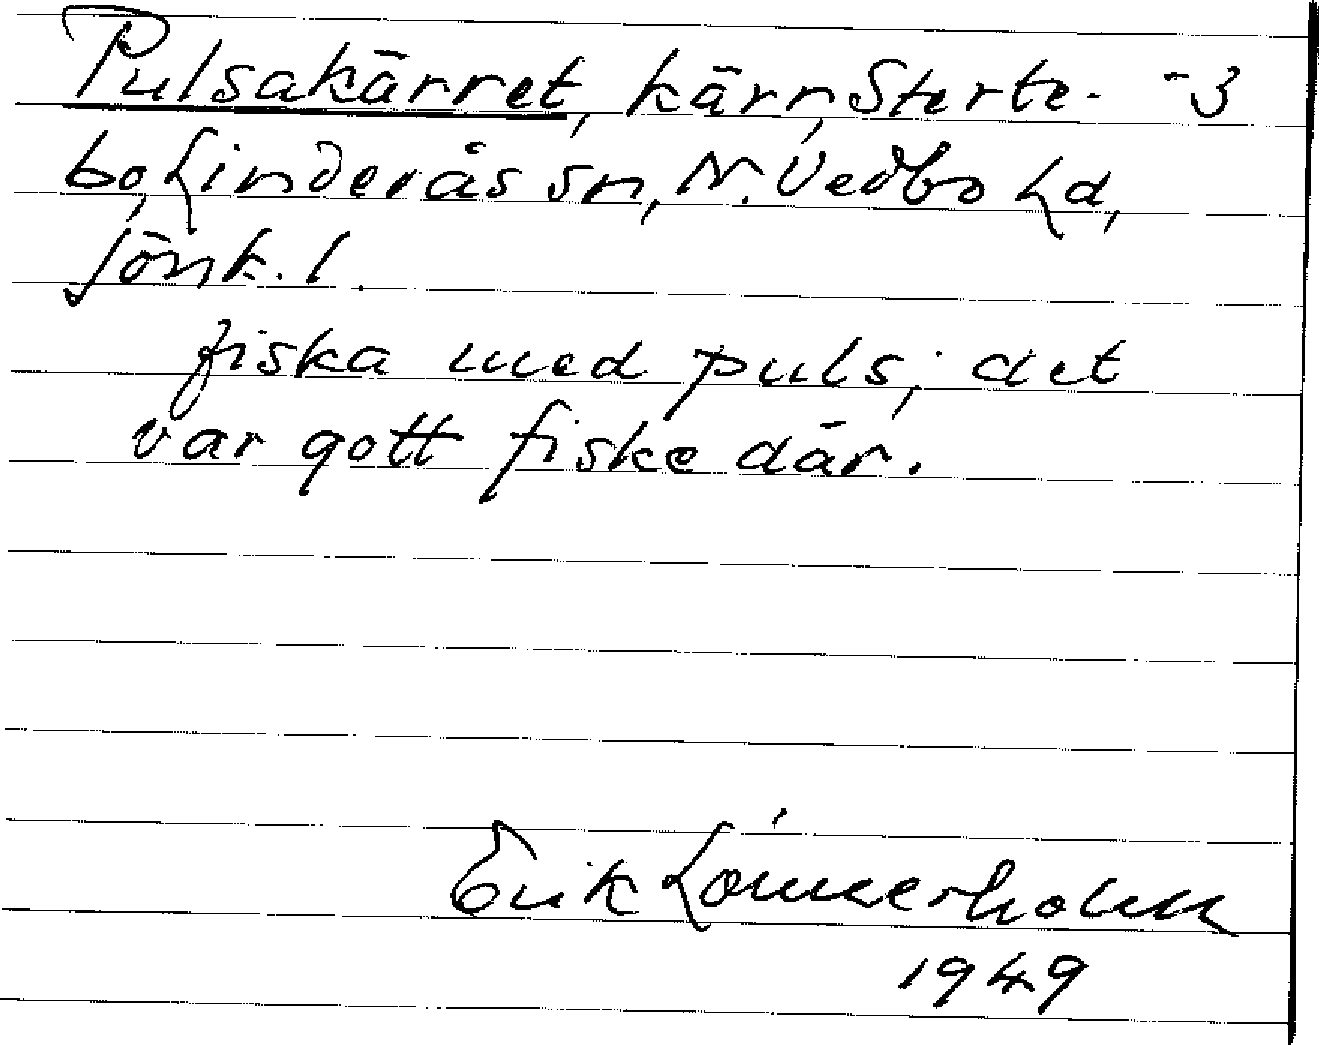 Pulsakärret, kärr, Sterte- -3
bo, Linderås sn, N. Vedbo hd,
Jönk. l.
fiska med puls; det
var gott fiske där.
Erik Lönnerholm
1949